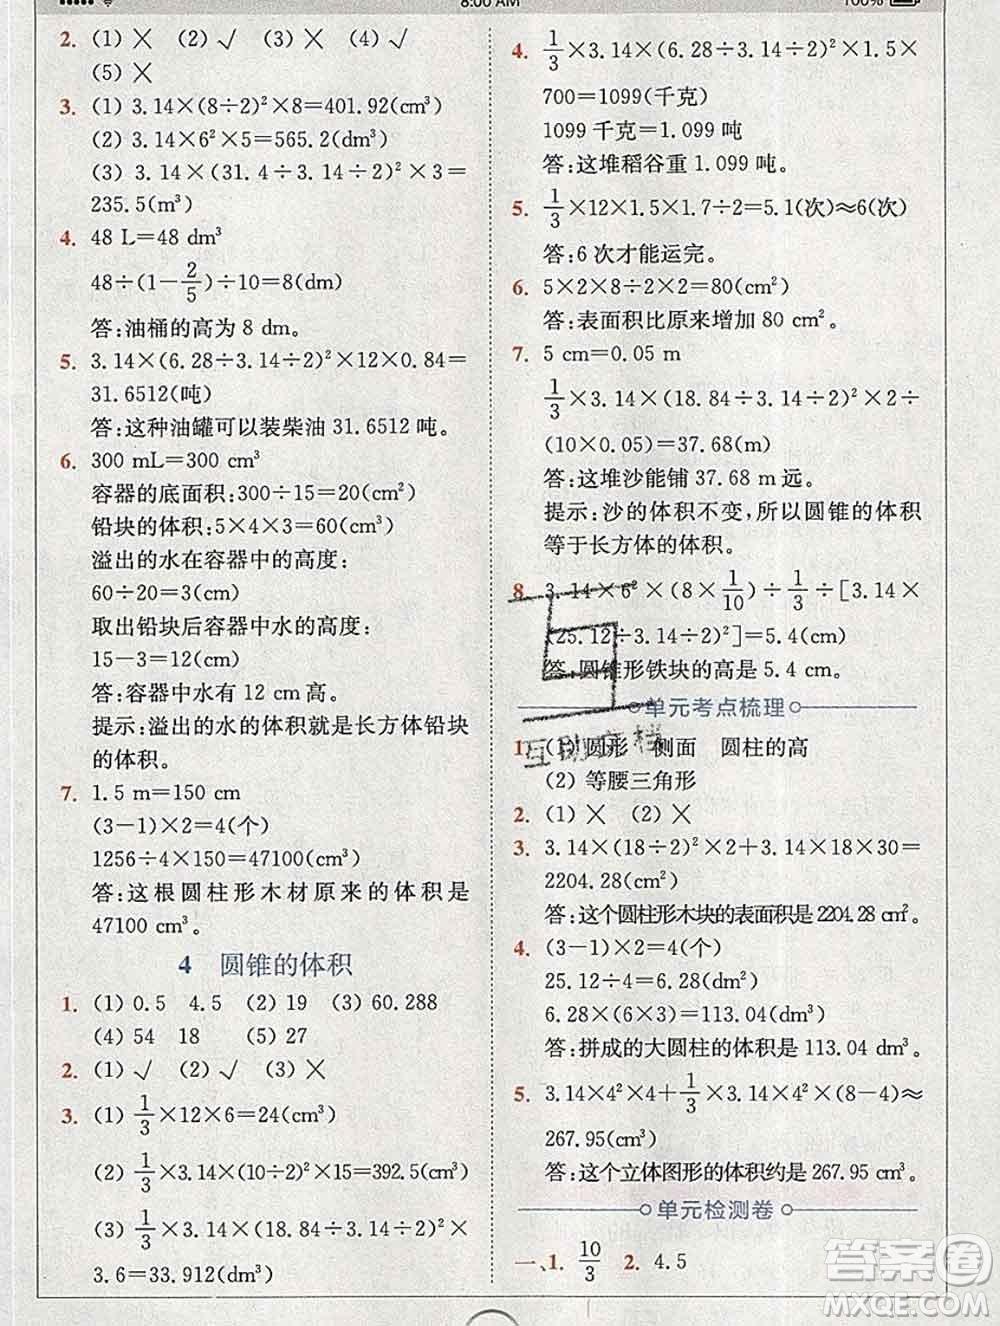 8:00 AM
100%
2. (1)× (2)√ (3)× (4)√
(5)×
3. (1) 3.14×(8÷2)²×8=401.92(cm³)
(2) 3.14×6²×5=565.2(dm³)
(3) 3.14×(31.4÷3.14÷2)²×3=
235.5(m³)
4. 48 L=48 dm³
48÷(1－2/5)÷10=8(dm)
答:油桶的高为 8 dm。
5. 3.14×(6.28÷3.14÷2)²×12×0.84=
31.6512(吨)
答:这种油罐可以装柴油 31.6512 吨。
6. 300 mL=300 cm³
容器的底面积:300÷15=20(cm²)
铅块的体积:5×4×3=60(cm³)
溢出的水在容器中的高度:
60÷20=3(cm)
取出铅块后容器中水的高度:
15－3=12(cm)
答:容器中水有 12 cm 高。
提示:溢出的水的体积就是长方体铅块
的体积。
7. 1.5 m=150 cm
(3－1)×2=4(个)
1256÷4×150=47100(cm³)
答:这根圆柱形木材原来的体积是
47100 cm³。
4 圆锥的体积
1. (1) 0.5 4.5 (2) 19 (3) 60.288
(4) 54 18 (5) 27
2. (1)√ (2)√ (3)×
3. (1) 1/3×12×6=24(cm³)
(2) 1/3×3.14×(10÷2)²×15=392.5(cm³)
(3) 1/3×3.14×(18.84÷3.14÷2)²×
3.6=33.912(dm³)
4. 1/3×3.14×(6.28÷3.14÷2)²×1.5×
700=1099(千克)
1099 千克=1.099 吨
答:这堆稻谷重 1.099 吨。
5. 1/3×12×1.5×1.7÷2=5.1(次)≈6(次)
答:6 次才能运完。
6. 5×2×8÷2×2=80(cm²)
答:表面积比原来增加 80 cm²。
7. 5 cm=0.05 m
1/3×3.14×(18.84÷3.14÷2)²×2÷
(10×0.05)=37.68(m)
答:这堆沙能铺 37.68 m 远。
提示:沙的体积不变,所以圆锥的体积
等于长方体的体积。
8. 3.14×6²×(8×1/10)÷1/3÷[3.14×
(25.12÷3.14÷2)²]=5.4(cm)
答:圆锥形铁块的高是 5.4 cm。
单元考点梳理
互助文档
1. (1) 圆形 侧面 圆柱的高
(2) 等腰三角形
2. (1)× (2)×
3. 3.14×(18÷2)²×2+3.14×18×30=
2204.28(cm²)
答:这个圆柱形木块的表面积是 2204.28 cm²。
4. (3－1)×2=4(个)
25.12÷4=6.28(dm²)
6.28×(6×3)=113.04(dm³)
答:拼成的大圆柱的体积是 113.04 dm³。
5. 3.14×4²×4+1/3×3.14×4²×(8－4)≈
267.95(cm³)
答:这个立体图形的体积约是 267.95 cm³。
单元检测卷
一、1. 10/3 2. 4.5
答案圈
MXQE.COM